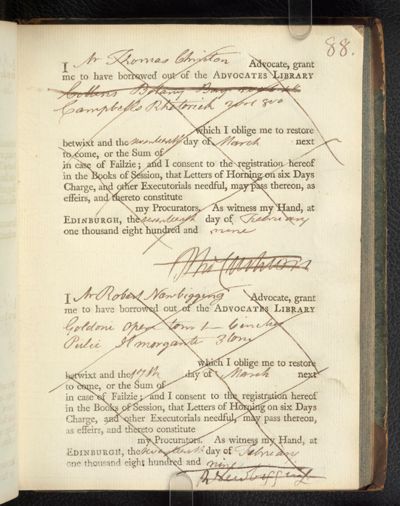 88.
I Mr Thomas Advocate, grant
me to have borrowed out of the ADVOCATES LIBRARY
Collins Botany Bay
Campbells Rhetorick 8vo
which I oblige me to restore
betwixt and the day of March next
to come, or the Sum of
in case of Failzie; and I consent to the registration hereof
in the Books of Session, that Letters of Horning on six Days
Charge, and other Executorials needful, may pass thereon, as
effeirs, and thereto constitute
my Procurators. As witness my Hand, at
EDINBURGH, the day of February
one thousand eight hundred and nine
I Mr Robert Newbigging Advocate, grant
me to have borrowed out of the ADVOCATES LIBRARY
Goldoni Opere tom 1
Pulci Il morgante 3 tom
which I oblige me to restore
betwixt and the 17th day of March next
to come, or the Sum of
in case of Failzie; and I consent to the registration hereof
in the Books of Session, that Letters of Horning on six Days
Charge, and other Executorials needful, may pass thereon,
as effeirs, and thereto constitute
my Procurators. As witness my Hand, at
EDINBURGH, the day of February
one thousand eight hundred and nine
R Newbigging